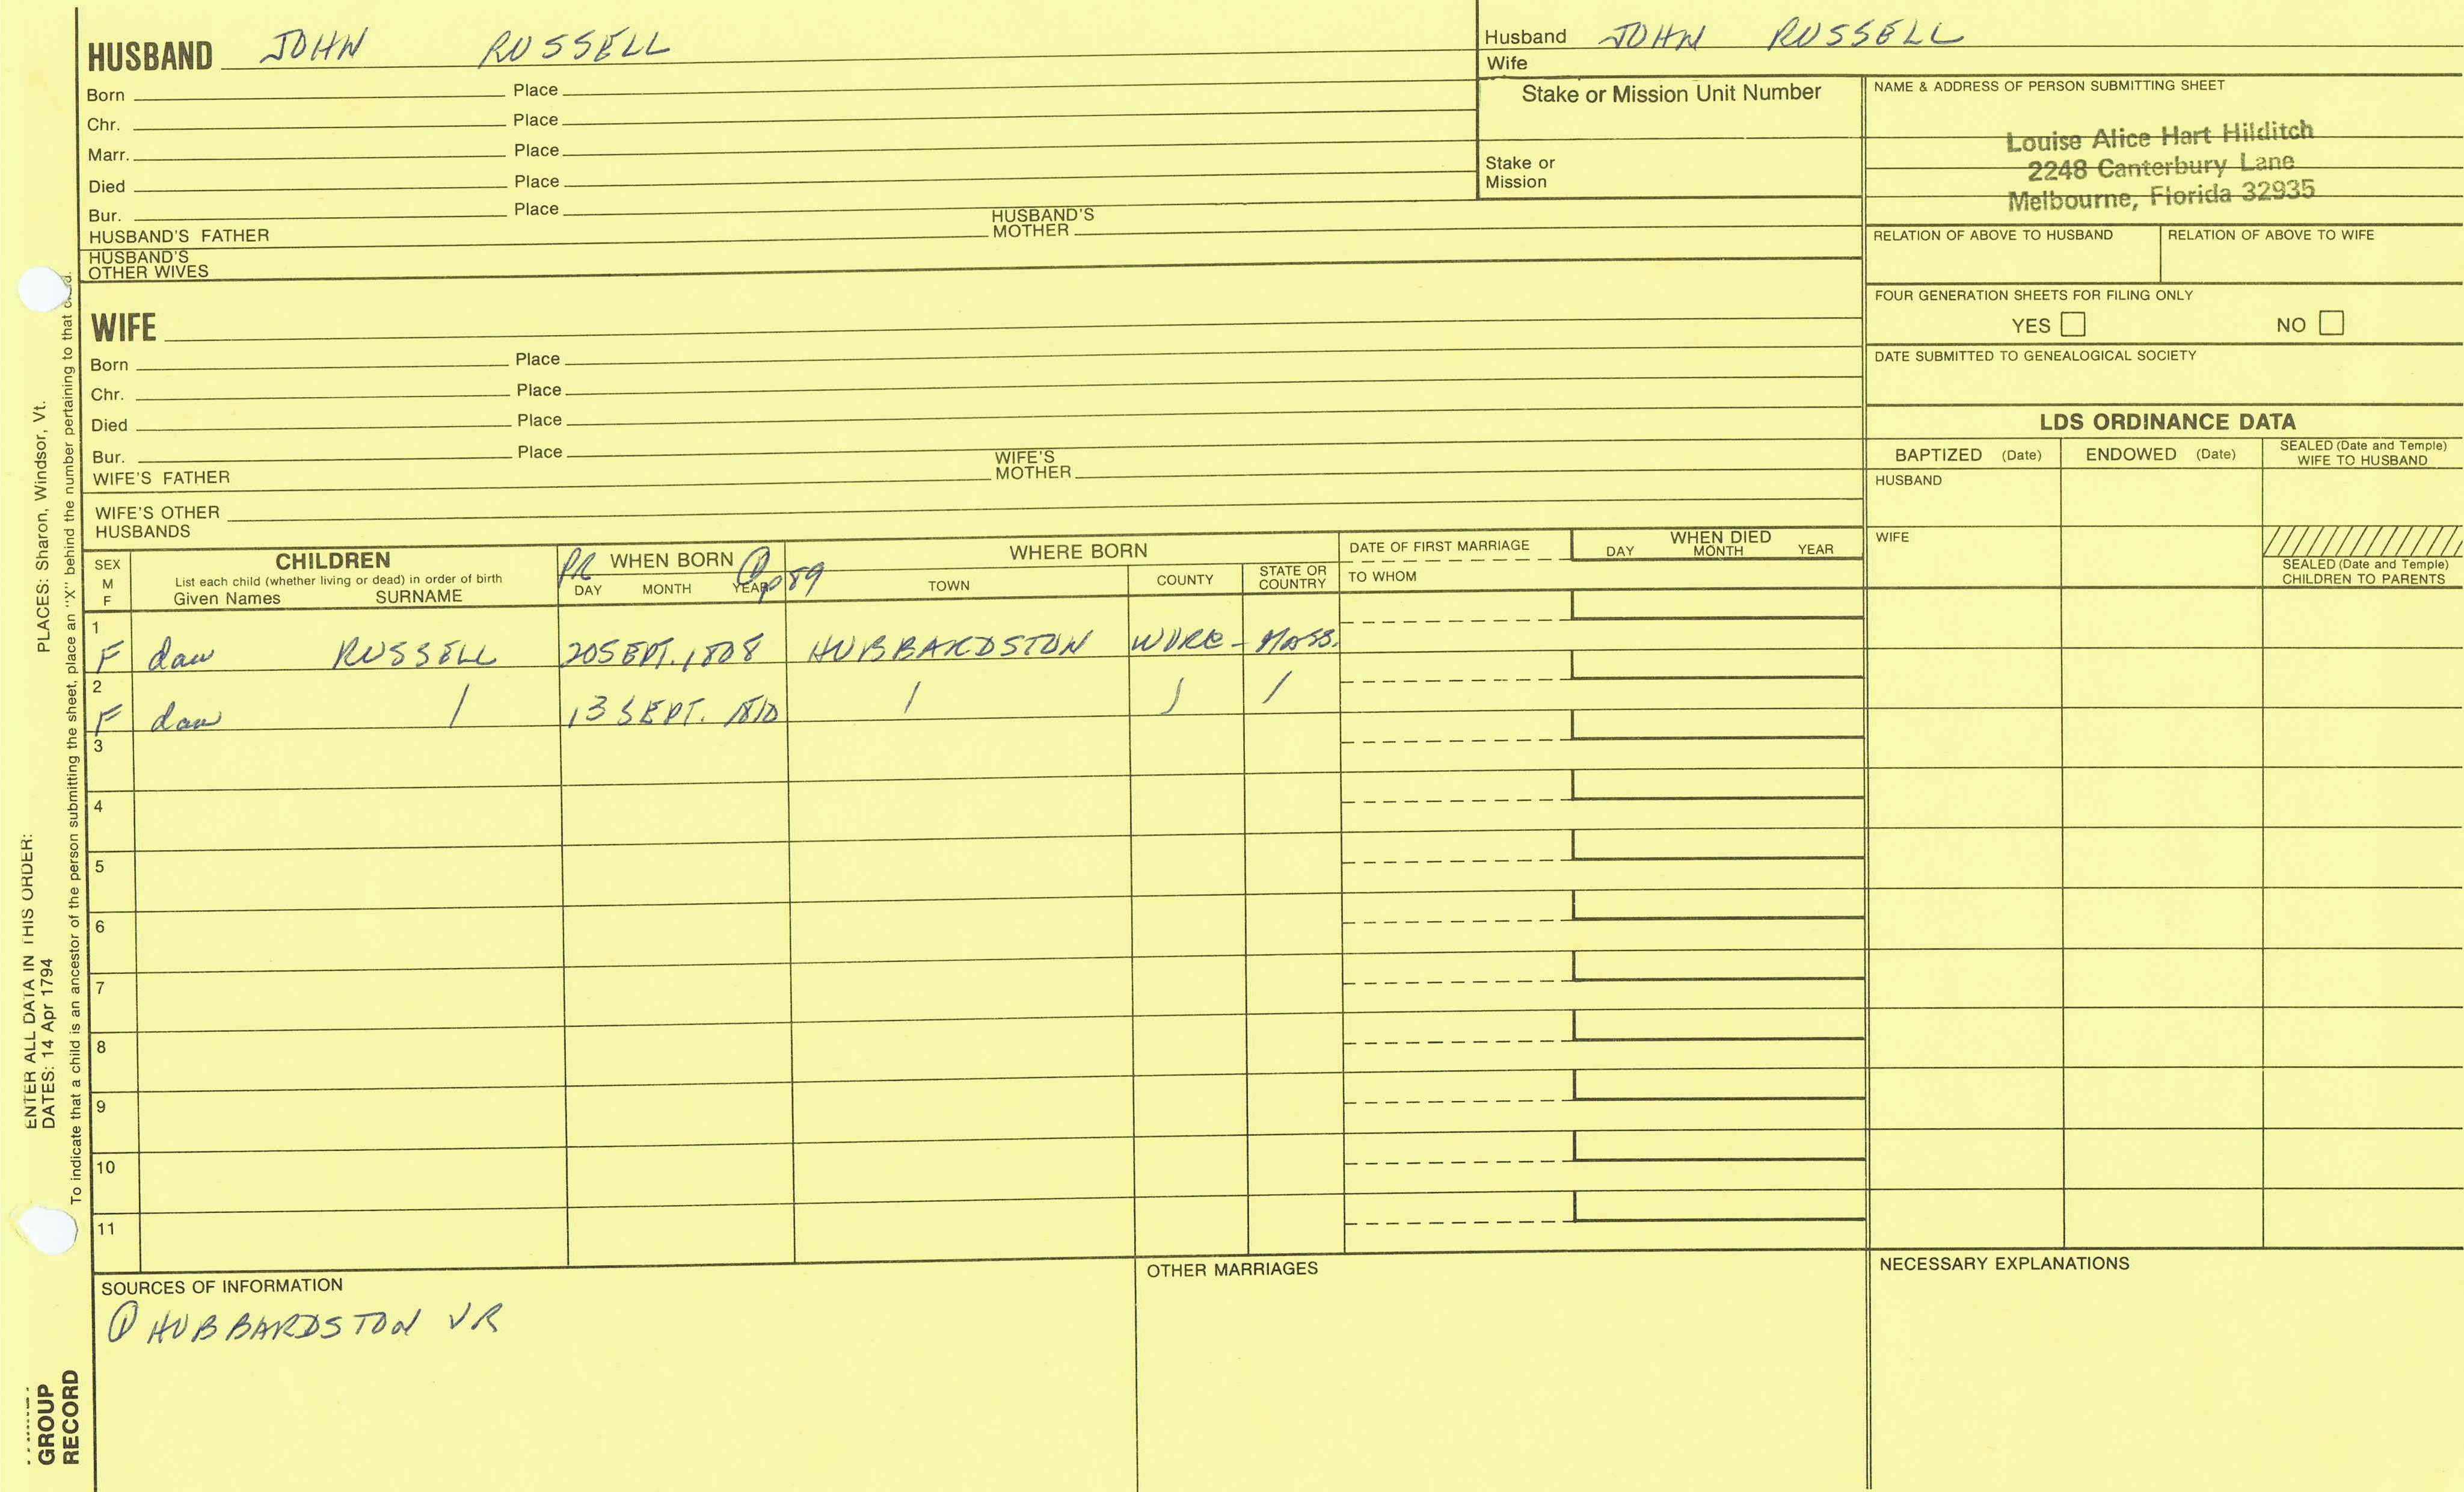 HUSBAND JOHN RUSSELL
Born Place
Chr. Place
Marr. Place
Died Place
Bur. Place
HUSBAND'S FATHER HUSBAND'S MOTHER
HUSBAND'S OTHER WIVES
Husband JOHN RUSSELL
Wife
Stake or Mission Unit Number
Stake or Mission
NAME & ADDRESS OF PERSON SUBMITTING SHEET
Louise Alice Hart Hilditch
2248 Canterbury Lane
Melbourne, Florida 32935
RELATION OF ABOVE TO HUSBAND RELATION OF ABOVE TO WIFE
FOUR GENERATION SHEETS FOR FILING ONLY
YES NO
DATE SUBMITTED TO GENEALOGICAL SOCIETY
WIFE
Born Place
Chr. Place
Died Place
Bur. Place
WIFE'S FATHER WIFE'S MOTHER
WIFE'S OTHER HUSBANDS
LDS ORDINANCE DATA
BAPTIZED (Date) ENDOWED (Date) SEALED (Date and Temple) WIFE TO HUSBAND
HUSBAND
WIFE
SEALED (Date and Temple) CHILDREN TO PARENTS
SEX M F
CHILDREN
List each child (whether living or dead) in order of birth
Given Names SURNAME
PR WHEN BORN ① p89
DAY MONTH YEAR
WHERE BORN
TOWN COUNTY STATE OR COUNTRY
DATE OF FIRST MARRIAGE
TO WHOM
WHEN DIED
DAY MONTH YEAR
1 F dau RUSSELL 20 SEPT. 1808 HUBBARDSTON WORC- MASS.
2 F dau / 13 SEPT. 1810 / / /
3
4
5
6
7
8
9
10
11
SOURCES OF INFORMATION
① HUBBARDSTON VR
OTHER MARRIAGES
NECESSARY EXPLANATIONS
ENTER ALL DATA IN THIS ORDER:
DATES: 14 Apr 1794 PLACES: Sharon, Windsor, Vt.
To indicate that a child is an ancestor of the person submitting the sheet, place an "X" behind the number pertaining to that
GROUP
RECORD